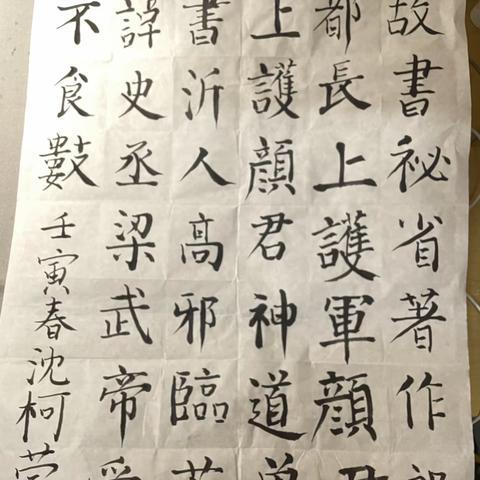 故書祕省著作
都長上護軍顔
上護顔君神道
書沂人高邪臨
史丞梁武帝
不食數
壬寅春沈柯